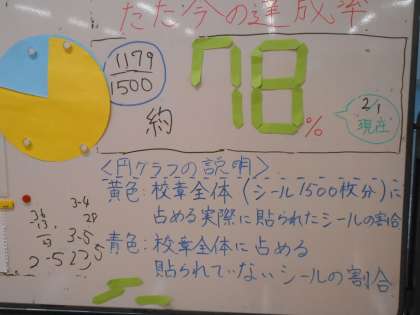 ただ今の達成率
1179
1500
約
78
%
2/1
現在
<円グラフの説明>
黄色:校章全体(シール1500枚分)に
占める実際に貼られたシールの割合
青色:校章全体に占める
貼られていないシールの割合
3-4
3-5